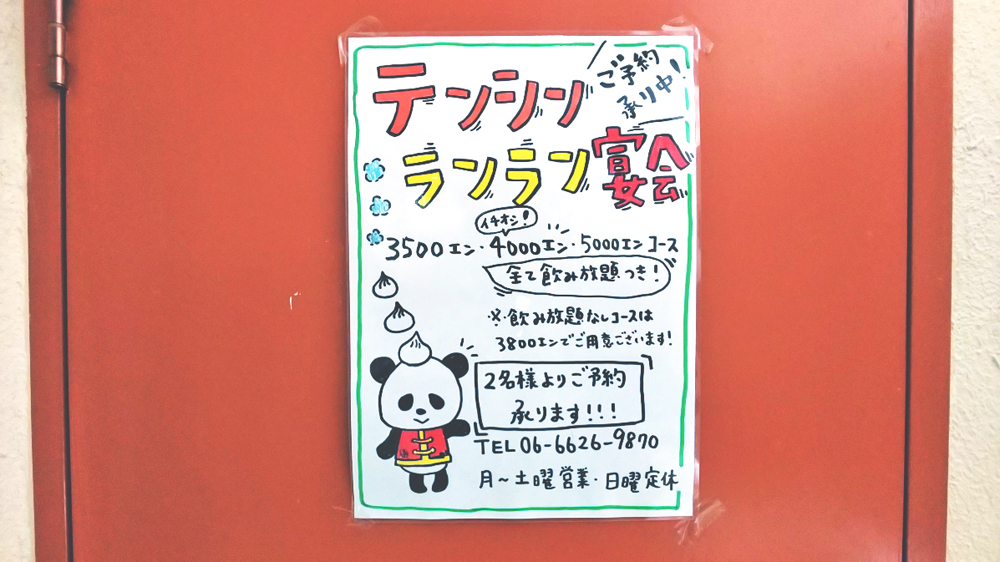 テンシン
ご予約
承り中!
ランラン宴会
イチオシ!
3500エン・4000エン・5000エンコース
全て飲み放題つき!
※飲み放題なしコースは
3800エンでご用意ございます!
2名様よりご予約
承ります!!!
TEL 06-6626-9870
月〜土曜営業・日曜定休